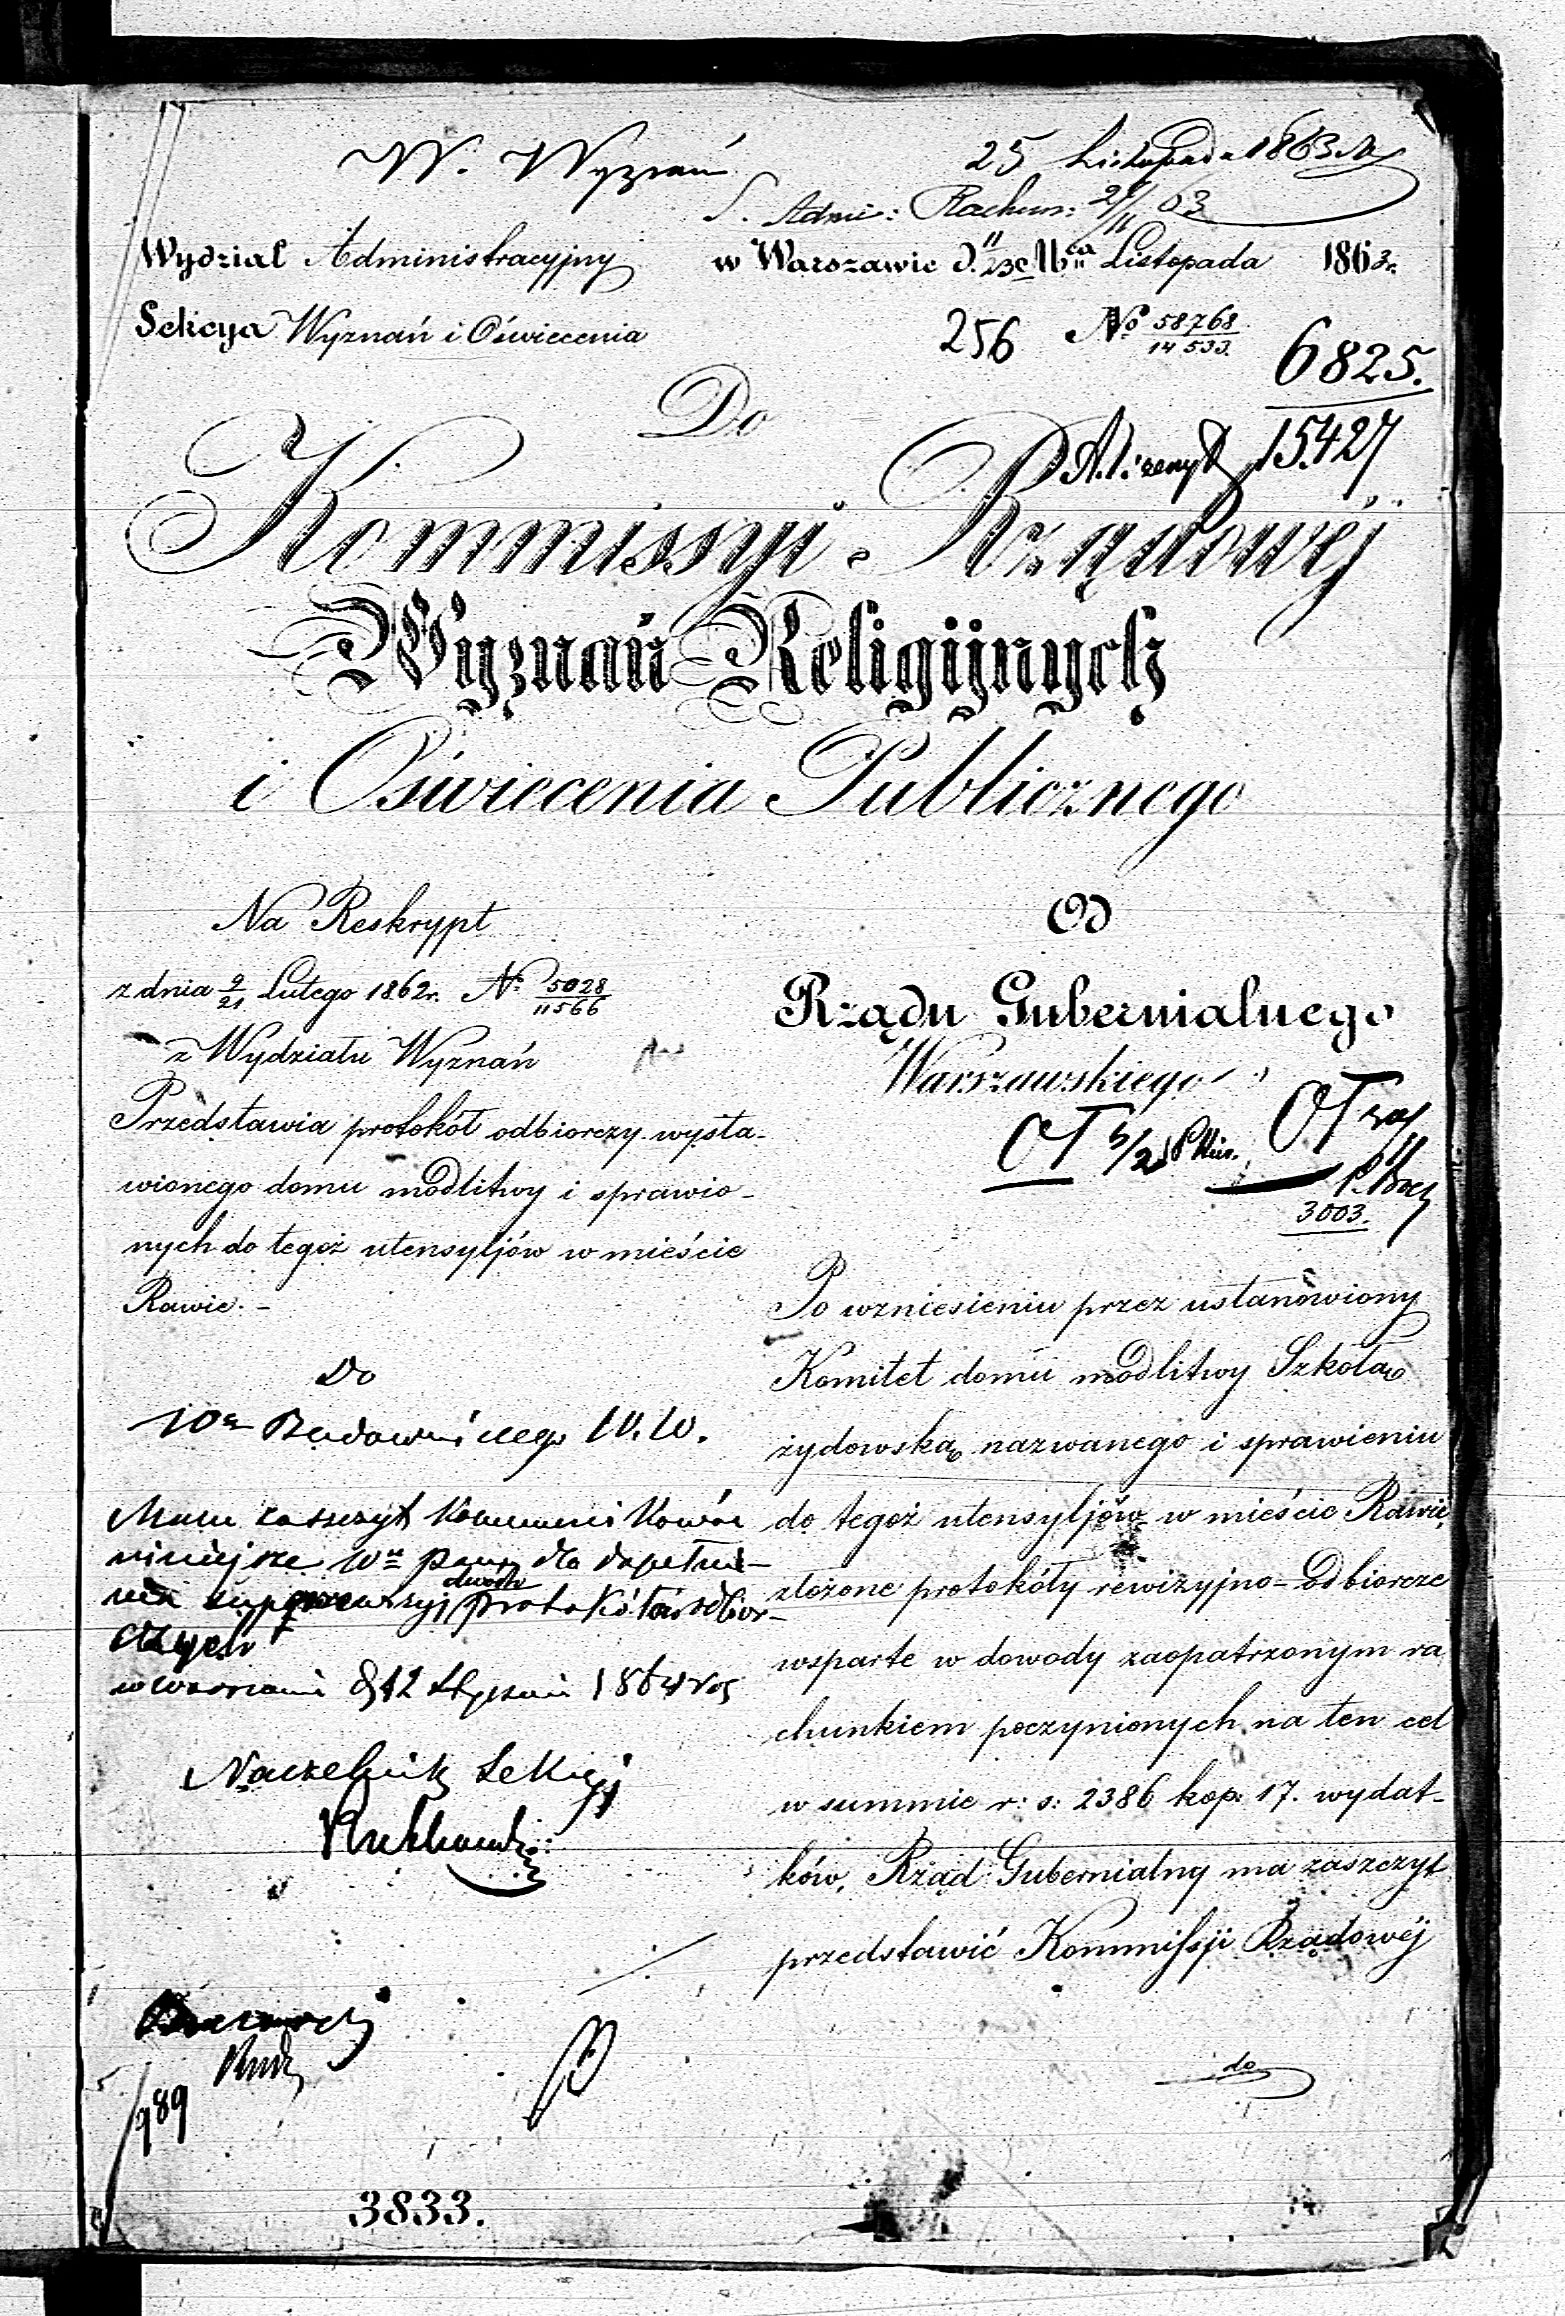 W. Wyznań
25 Listopada 1863
S. Admi: Rachun: 27/11 63
Wydział Administracyjny w Warszawie d. 11/23 Mca Listopada 1863 r.
Sekcya Wyznań i Oświecenia
256 No 58768/14533
6825.
15427
Do
Kommissyi Rządowéj
Wyznań Religijnych
i Oświecenia Publicznego
Na Reskrypt
z dnia 9/21 Lutego 1862 r. No 5028/11566
z Wydziału Wyznań
Przedstawia protokół odbiorczy wysta-
wionego domu modlitwy i sprawio-
nych do tegoż utensyljów w mieście
Rawie. -
Do
Budowniczego
Mam zaszczyt kommunikować
niniejsze dla dopełnie-
nia dwóch protokółów odbior-
czych
w Warszawie d 12 Stycznia 1864
Naczelnik Sekcyi
989
3833.
Od
Rządu Gubernialnego
Warszawskiego
3003.
Po wzniesieniu przez ustanowiony
Komitet domu modlitwy Szkołą
żydowską nazwanego i sprawieniu
do tegoż utensyljów w mieście Rawie,
złożone protokóły rewizyjno-odbiorcze
wsparte w dowody zaopatrzonym ra
chunkiem poczynionych na ten cel
w summie r: s: 2386 kop: 17. wydat-
ków, Rząd Gubernialny ma zaszczyt
przedstawić Kommissji Rządowéj
do